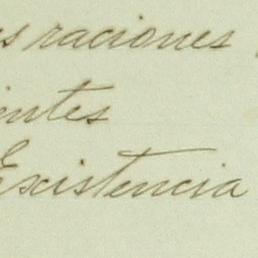 s raciones
ientes
Existencia